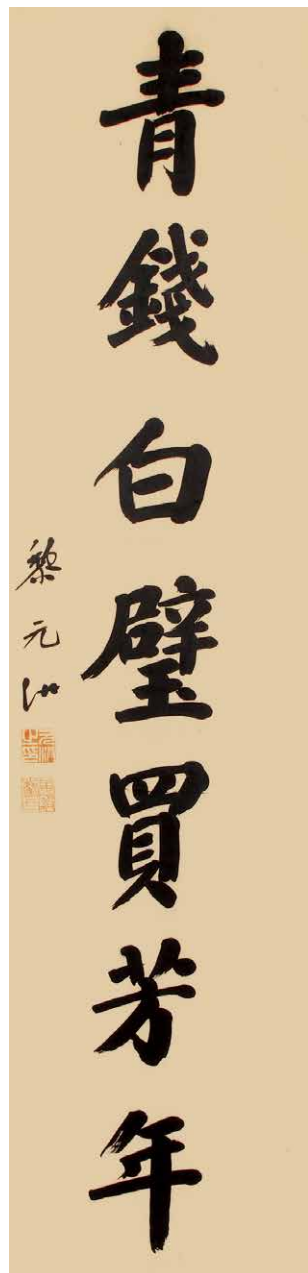 青錢白璧買芳年
黎元洪